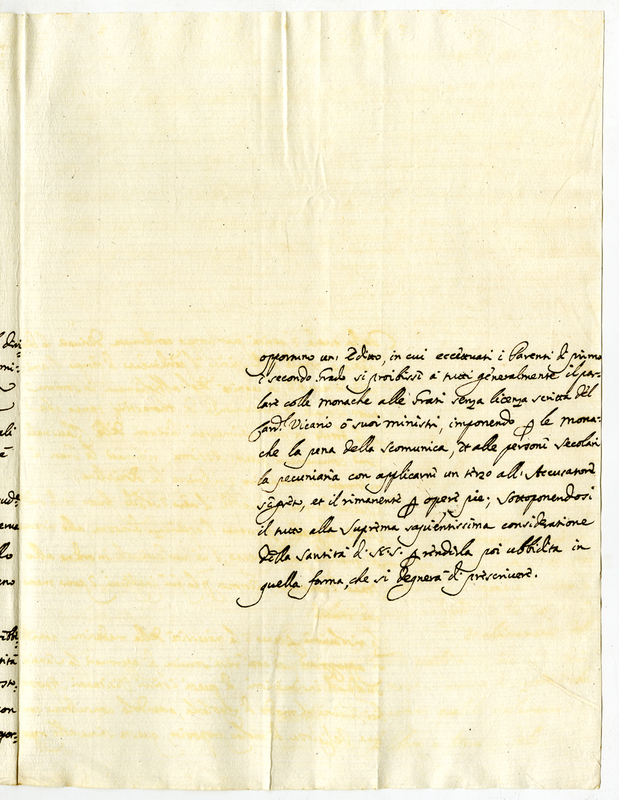 opportuno un' Editto, in cui eccettuati i Parenti di primo
e secondo Grado si proibisse à tutti generalmente il par-
lare colle monache alle Grati senza licenza scritta del
Card. Vicario ò suoi ministri, imponendo p le mona-
che la pena della scomunica, et alle persone secolari
la pecuniaria con applicarne un terzo all' Accusatore
segreto, et il rimanente p opere pie; sottoponendosi
il tutto alla suprema sapientissima consideratione
della Santità di V. S. p renderla poi ubbidita in
quella forma, che si degnerà di prescrivere.